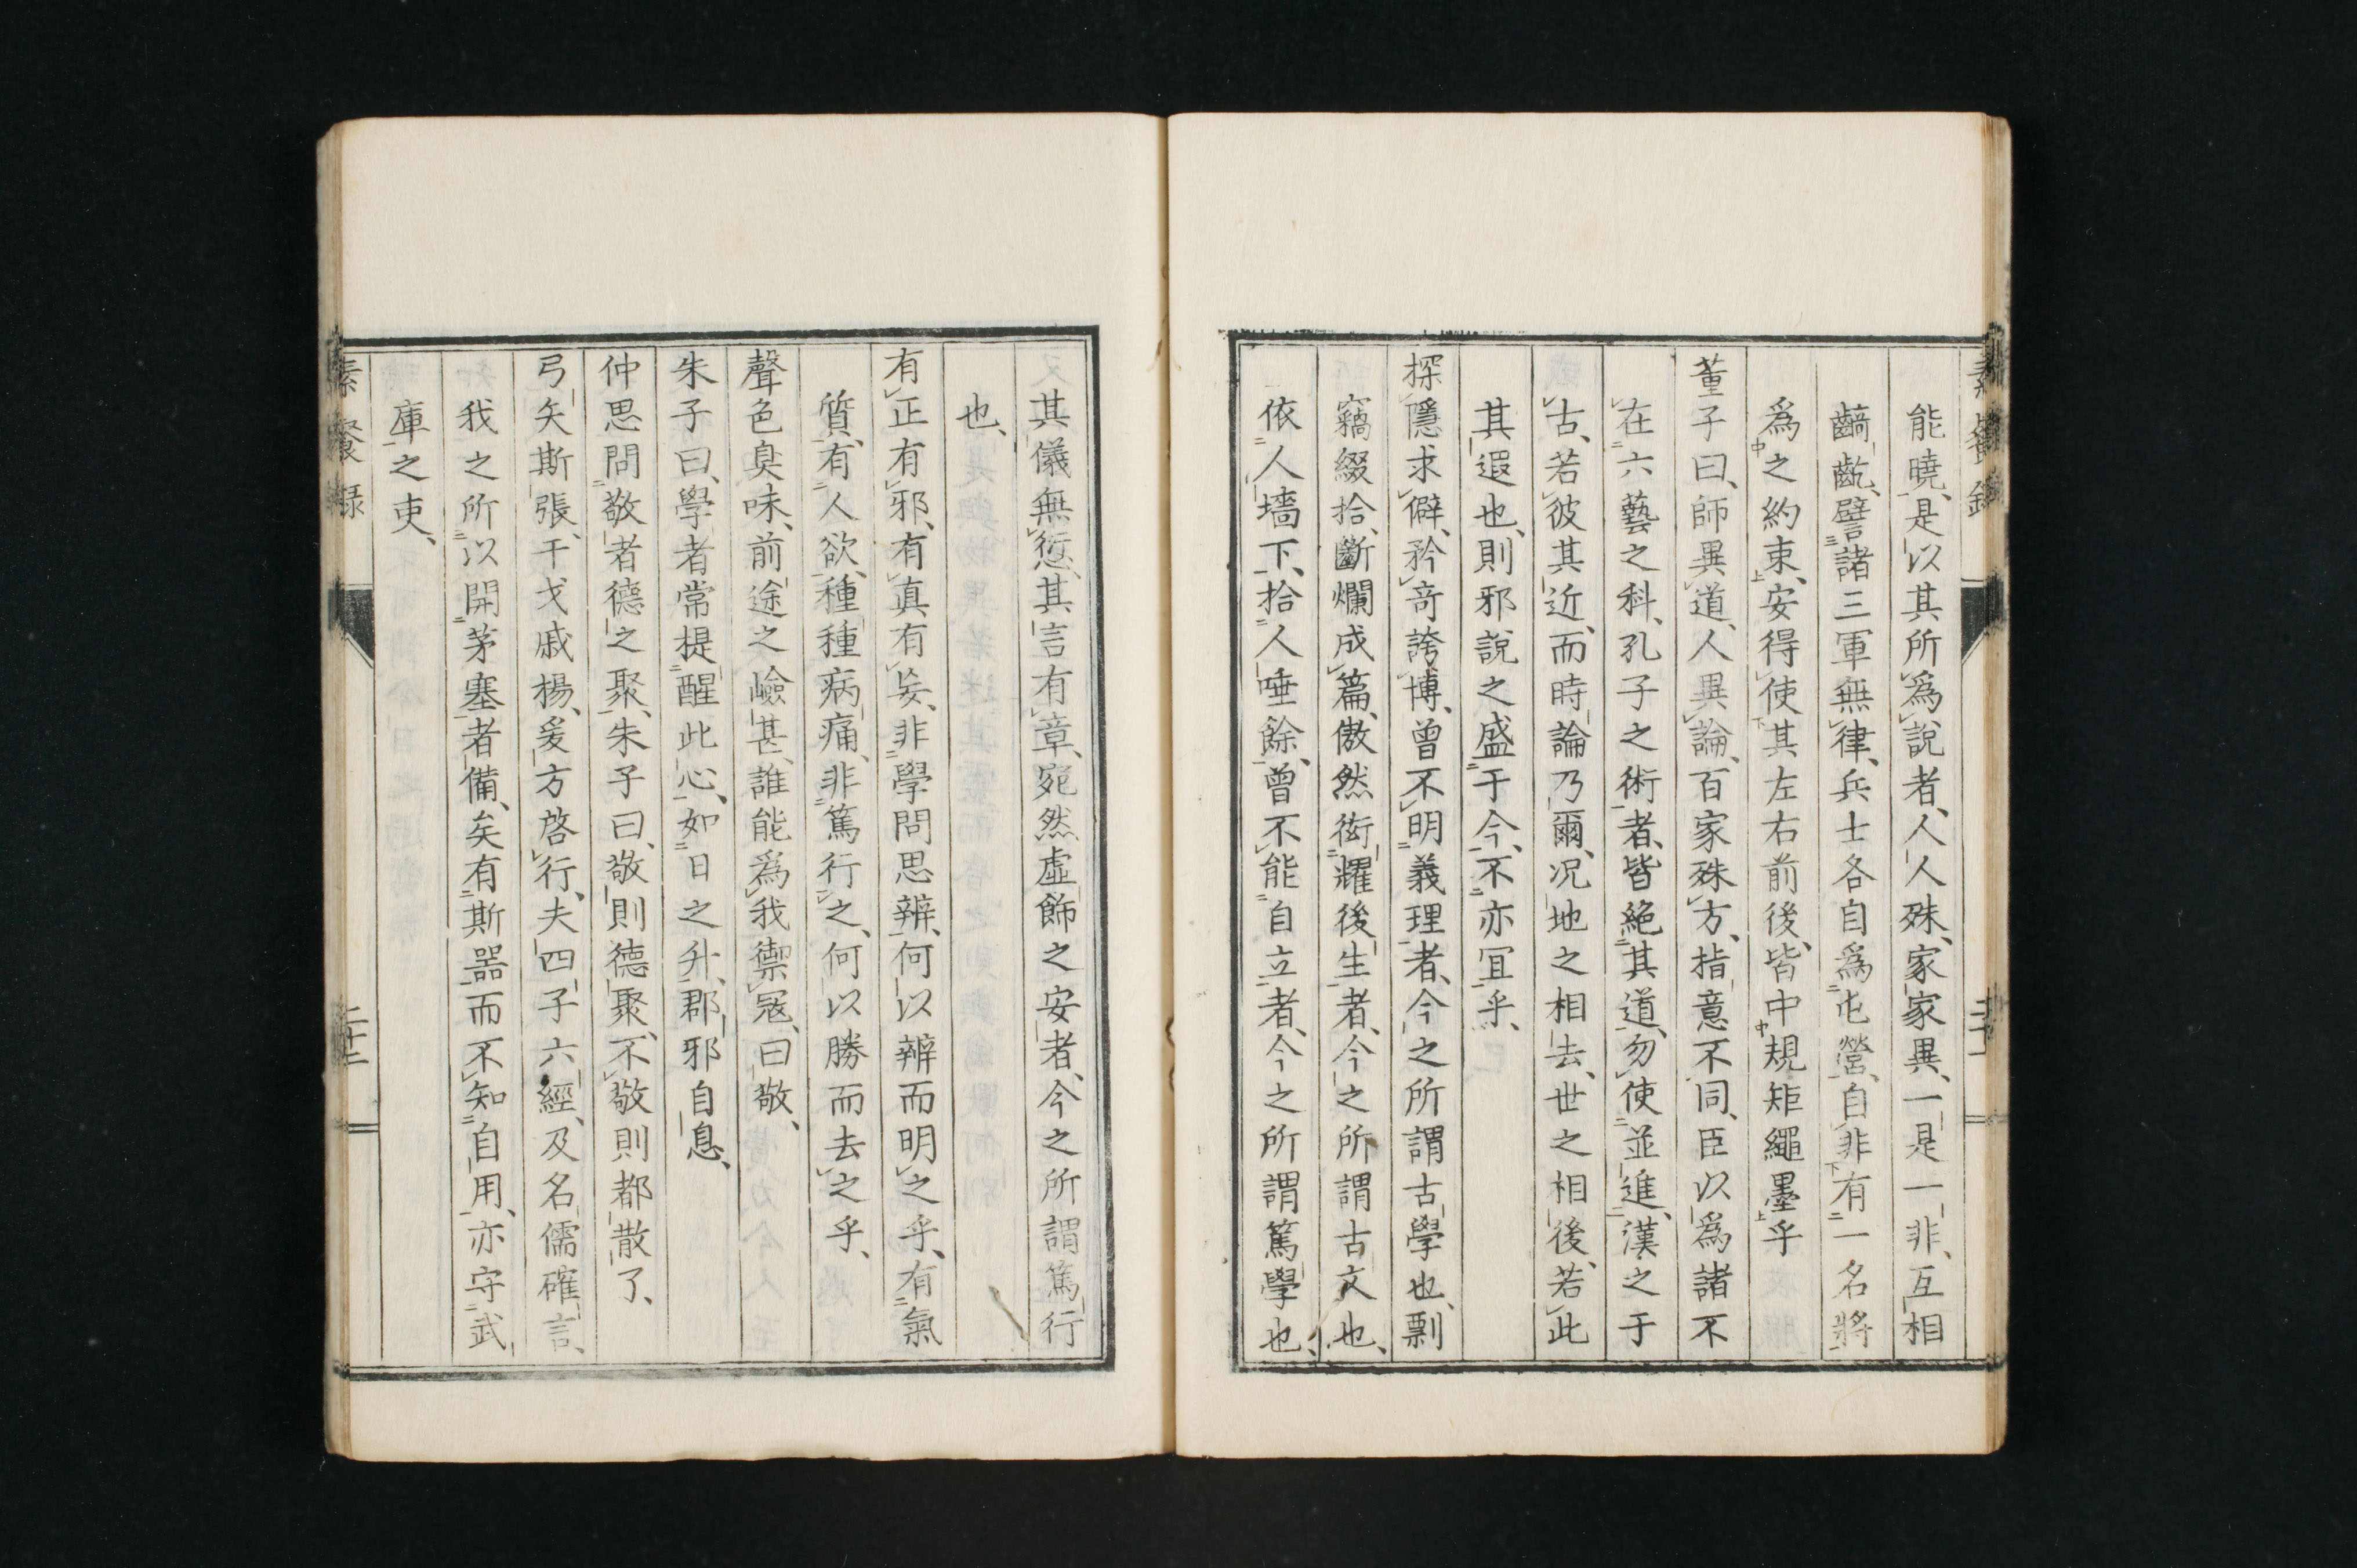 能曉、是以其所爲說者、人人殊、家家異、一是一非、互相
齮齕、譬諸三軍無律、兵士各自爲屯營、自非有一名將
爲之約束、安得使其左右前後、皆中規矩繩墨乎
董子曰、師異道、人異論、百家殊方、指意不同、臣以爲諸不
在六藝之科、孔子之術者、皆絕其道、勿使並進、漢之于
古、若彼其近、而時論乃爾、况地之相去、世之相後、若此
其遐也、則邪說之盛于今、不亦冝乎、
探隱求僻、矜奇誇博、曾不明義理者、今之所謂古學也、剽
竊綴拾、斷爛成篇、傲然衒耀後生者、今之所謂古文也、
依人墻下、拾人唾餘、曾不能自立者、今之所謂篤學也、
其儀無愆、其言有章、宛然虛飾之安者、今之所謂篤行
也、
有正有邪、有真有妄、非學問思辨、何以辨而明之乎、有氣
質、有人欲、種種病痛、非篤行之、何以勝而去之乎、
聲色臭味、前途之嶮甚、誰能爲我禦冦、曰敬、
朱子曰、學者常提醒此心、如日之升、郡邪自息、
仲思問敬者德之聚、朱子曰、敬則德聚、不敬則都散了、
弓矢斯張、干戈戚揚、爰方啓行、夫四子六經、及名儒確言、
我之所以開茅塞者備、矣有斯噐而不知自用、亦守武
庫之吏、
素餐録
二十二